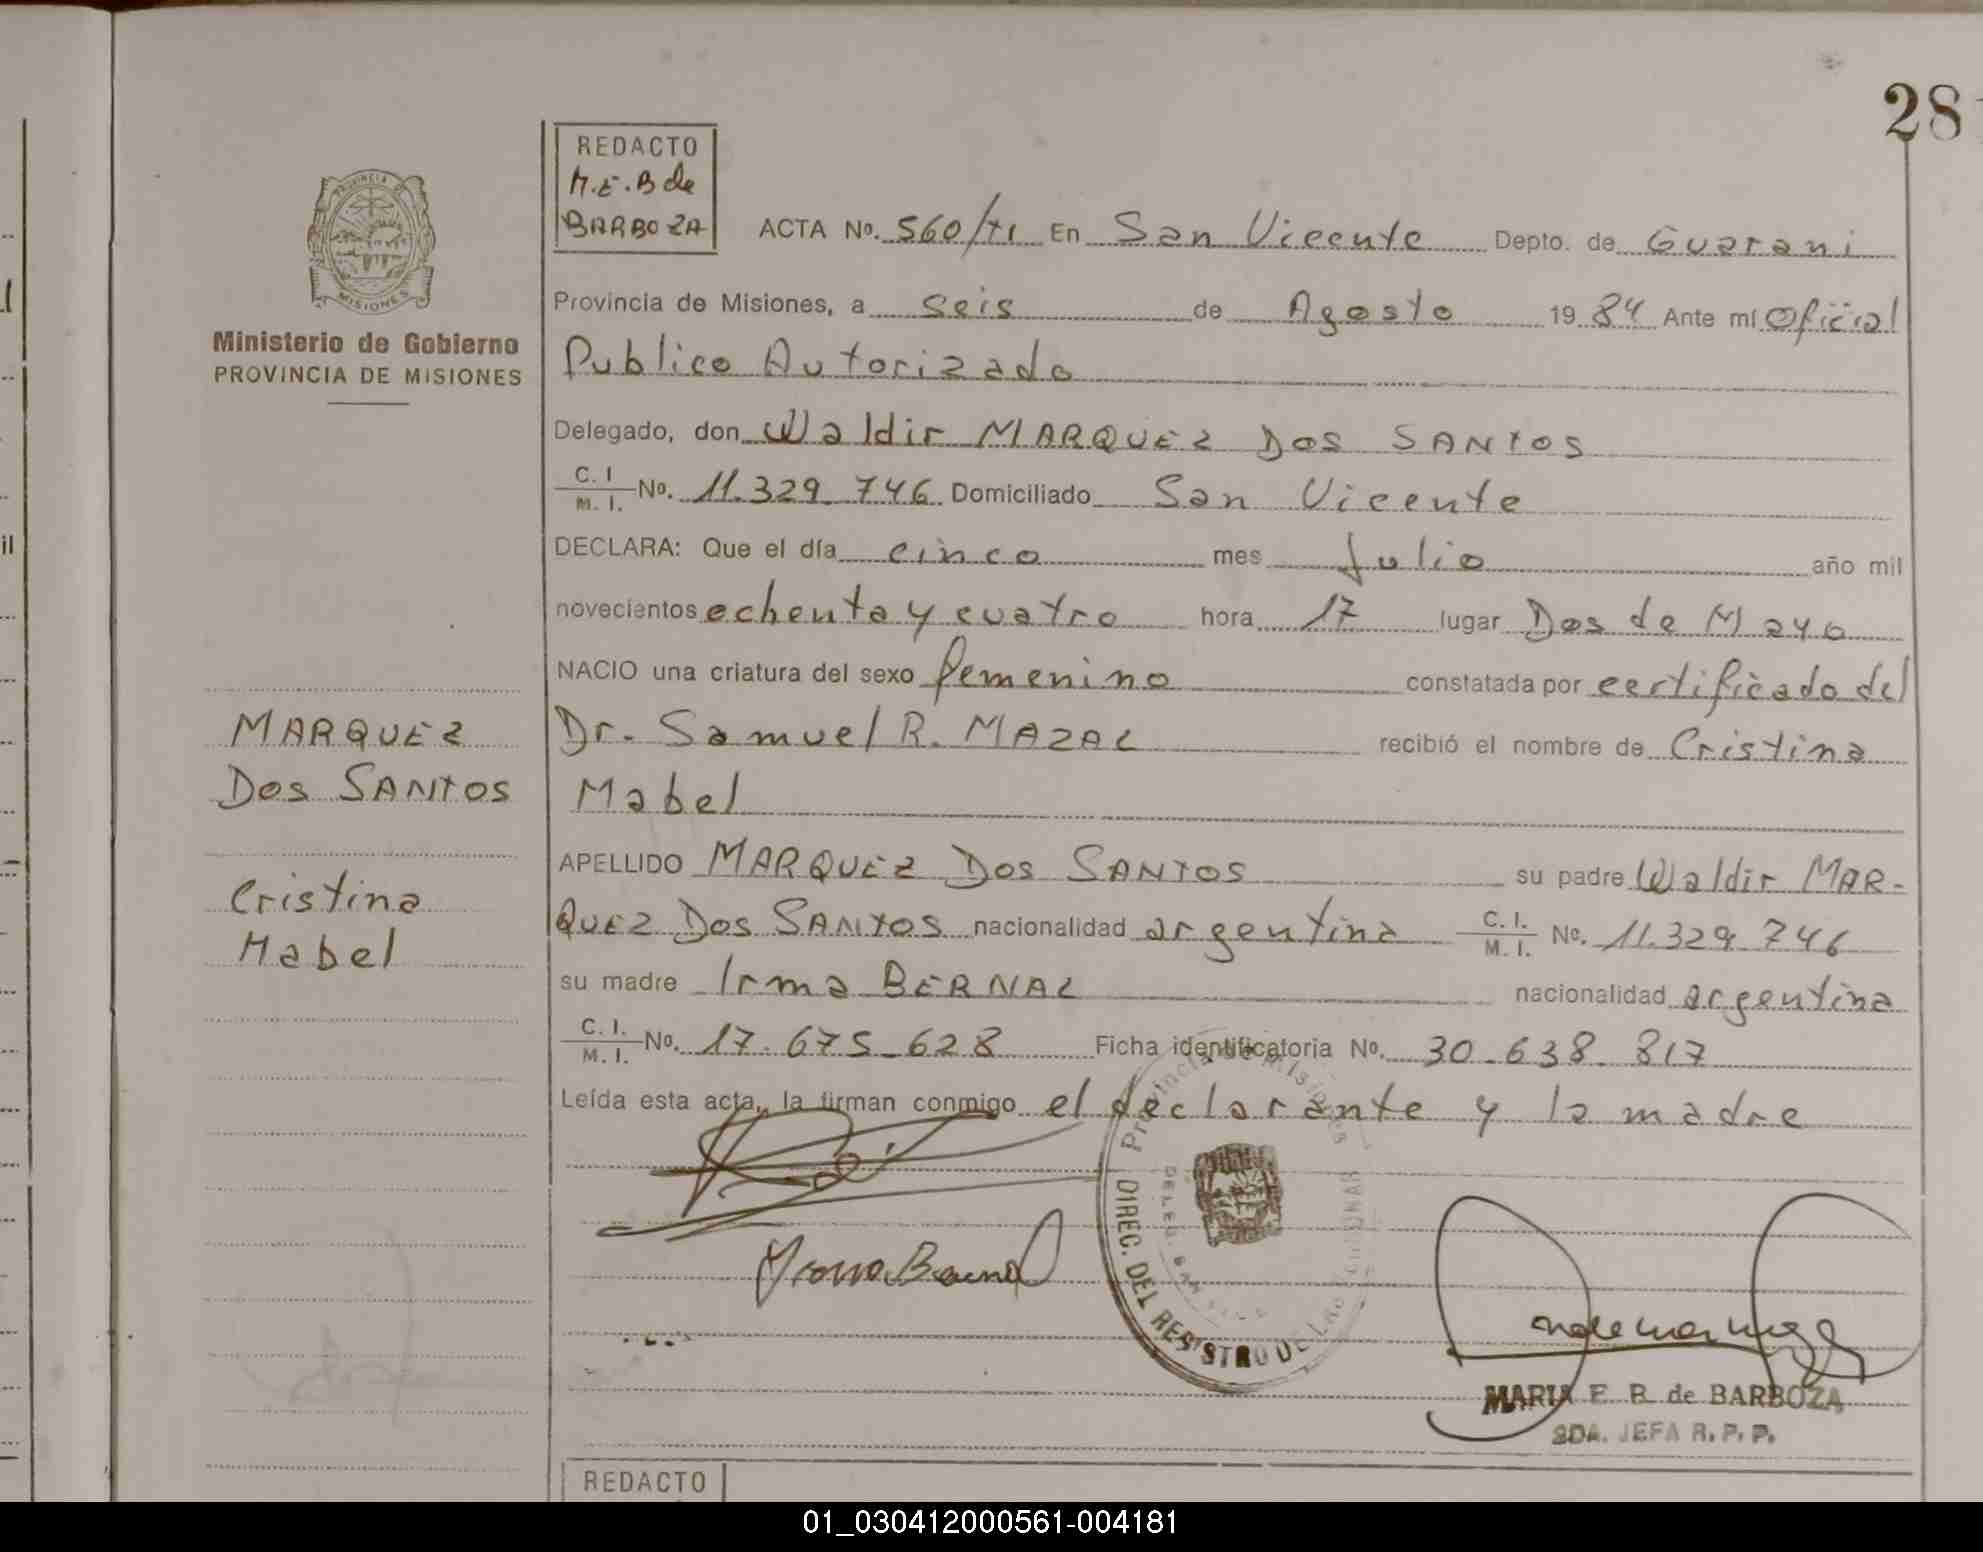 28
REDACTO
M.E.B de
BARBOZA
ACTA No. 560/T1 En San Vicente Depto. de Guarani
PROVINCIA DE
MISIONES
Ministerio de Gobierno
PROVINCIA DE MISIONES
Provincia de Misiones, a seis de Agosto 1984 Ante mí Oficial
Publico Autorizado
Delegado, don Waldir MARQUEZ DOS SANTOS
C. I
M. I. No. 11.329.746 Domiciliado San Vicente
DECLARA: Que el día cinco mes Julio año mil
novecientos ochenta y cuatro hora 17 lugar Dos de Mayo
NACIO una criatura del sexo femenino constatada por certificado del
Dr. Samuel R. MAZAL recibió el nombre de Cristina
Mabel
MARQUEZ
DOS SANTOS
Cristina
Mabel
APELLIDO MARQUEZ DOS SANTOS su padre Waldir MAR-
QUEZ DOS SANTOS nacionalidad argentina C. I.
M. I. No. 11.329.746
su madre Irma BERNAL nacionalidad argentina
C. I.
M. I. No. 17.675.628 Ficha identificatoria No. 30.638.817
Leída esta acta, la firman conmigo el declarante y la madre
Provincia de Misiones
DIREC. DEL REGISTRO DE LAS
Irma Bernal
MARIA E. B. de BARBOZA
2DA. JEFA R. P. P.
REDACTO
01_030412000561-004181